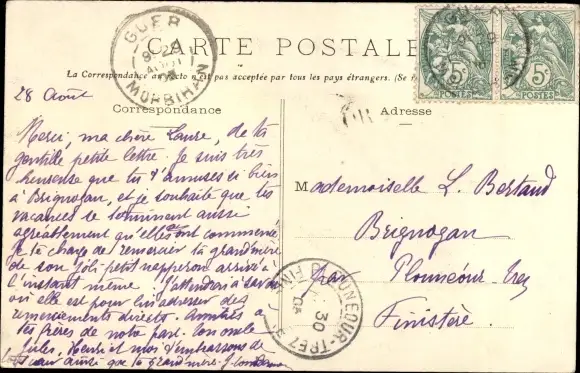 CARTE POSTALE
La Correspondance au recto n'est pas acceptée par tous les pays étrangers. (Se
GUER
MORBIHAN
5c
POSTES
5c
POSTES
28 Août
Correspondance
Merci, ma chère Laure, de ta
gentille petite lettre. Je suis très
heureuse que tu t'amuses si bien
à Brignogan, et je souhaite que tes
vacances se terminent aussi
agréablement qu'elles ont commencé
Je te charge de remercier ta grand'mère
de son joli petit napperon arrivé à
l'instant même. J'attendrai à savoir
où elle est pour lui adresser des
remerciements directs. Amitiés à
tes frères de notre part. Ton oncle
Jules, Henri et moi t'embrassons de
tout cœur ainsi que ta grand'mère.
Adresse
Mademoiselle L. Bertaud
Brignogan
par Plounéour-Trez
Finistère.
PLOUNEOUR-TREZ
FINISTERE
30